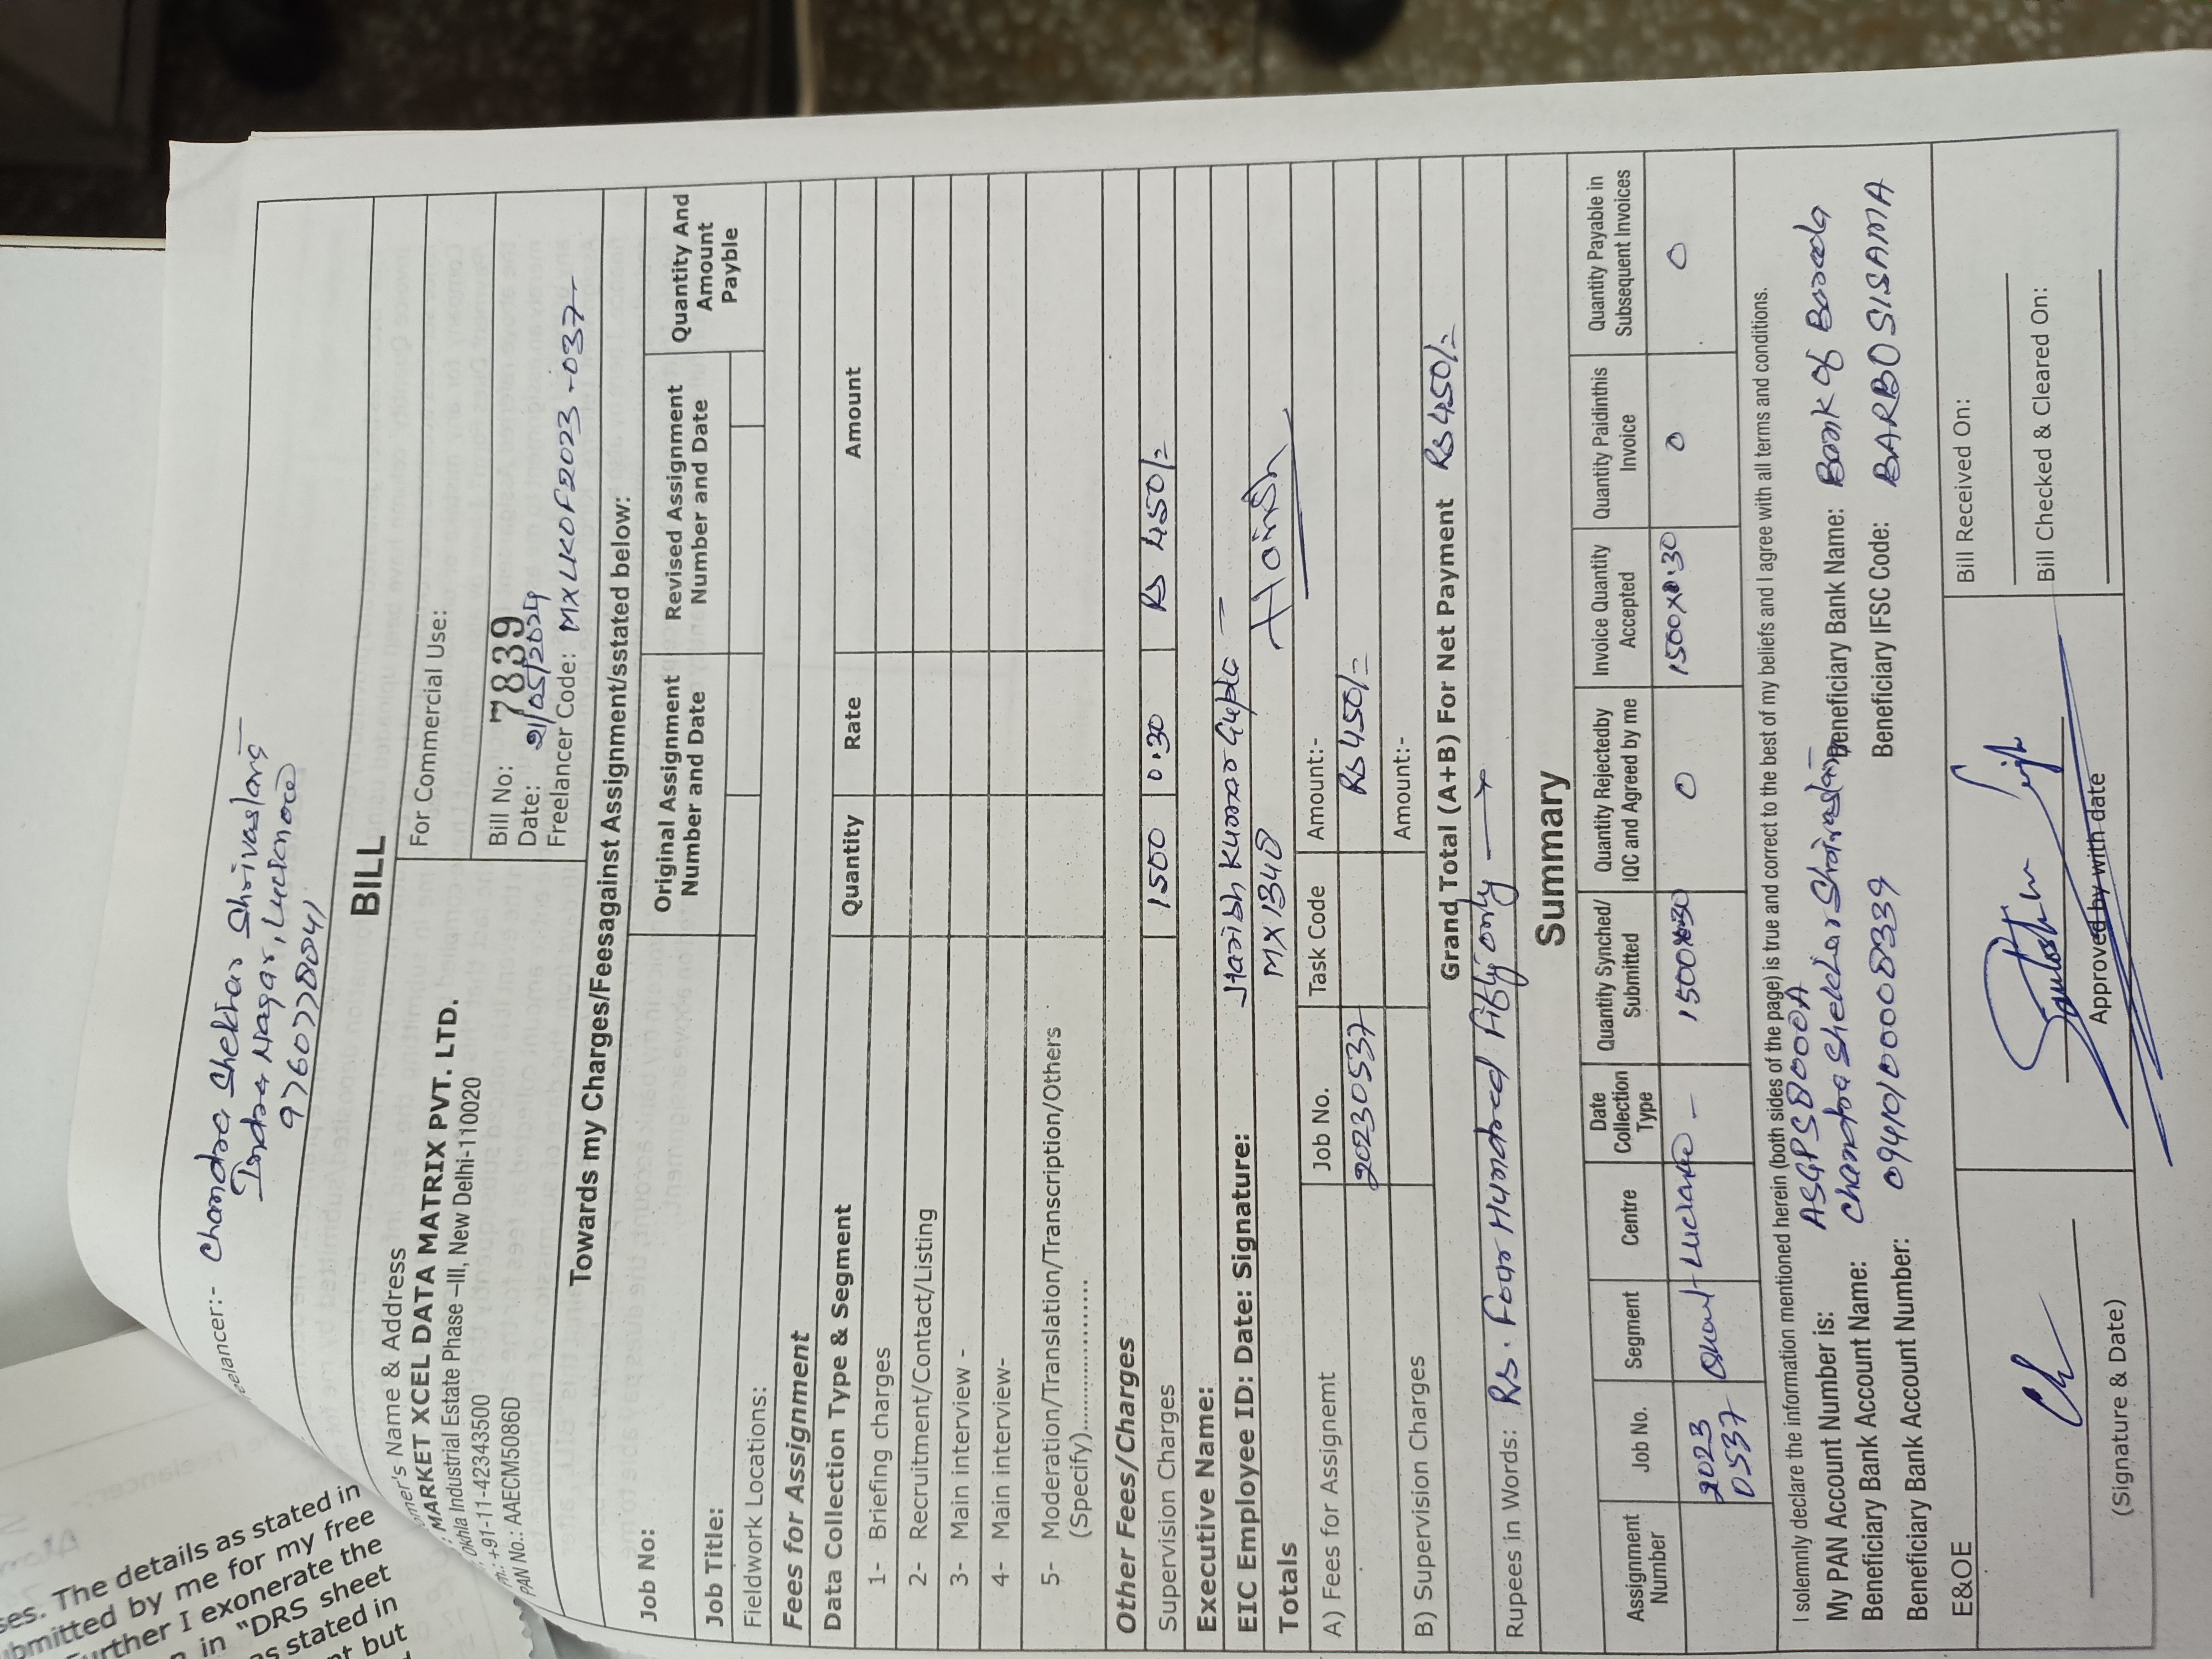 eelancer:- Chandra Shekhar Shrivastava
Indra Nagar, Lucknow
9760778041
BILL
omer's Name & Address
MARKET XCEL DATA MATRIX PVT. LTD.
Okhla Industrial Estate Phase –III, New Delhi-110020
+91-11-42343500
PAN No.: AAECM5086D
For Commercial Use:
Bill No: 7839
Date: 21/05/2024
Freelancer Code: MXLKOF2023-037
Towards my Charges/Feesagainst Assignment/sstated below:
Job No: Original Assignment Number and Date Revised Assignment Number and Date Quantity And Amount Payble
Job Title:
Fieldwork Locations:
Fees for Assignment
Data Collection Type & Segment Quantity Rate Amount
1- Briefing charges
2- Recruitment/Contact/Listing
3- Main interview -
4- Main interview-
5- Moderation/Translation/Transcription/Others
(Specify)......................
Other Fees/Charges
Supervision Charges 1500 0.30 Rs 450/=
Executive Name: Harish Kumar Gupta
EIC Employee ID: Date: Signature: MX1340 Harish
Totals
A) Fees for Assignemt Job No. Task Code Amount:-
20230537 Rs 450/=
B) Supervision Charges Amount:-
Grand Total (A+B) For Net Payment Rs 450/=
Rupees in Words: Rs. Four Hundred Fifty only
Summary
Assignment Number Job No. Segment Centre Date Collection Type Quantity Synched/ Submitted Quantity Rejectedby IQC and Agreed by me Invoice Quantity Accepted Quantity Paidinthis Invoice Quantity Payable in Subsequent Invoices
2023 0537 Quant Lucknow - 1500x0.30 0 1500x0.30 0 0
I solemnly declare the information mentioned herein (both sides of the page) is true and correct to the best of my beliefs and I agree with all terms and conditions.
My PAN Account Number is: ASGPS8000A
Beneficiary Bank Account Name: Chandra Shekhar Shrivastava Beneficiary Bank Name: Bank of Baroda
Beneficiary Bank Account Number: 09410100008339 Beneficiary IFSC Code: BARB0SISAMA
E&OE
Bill Received On:
Bill Checked & Cleared On:
(Signature & Date)
Approved by with date